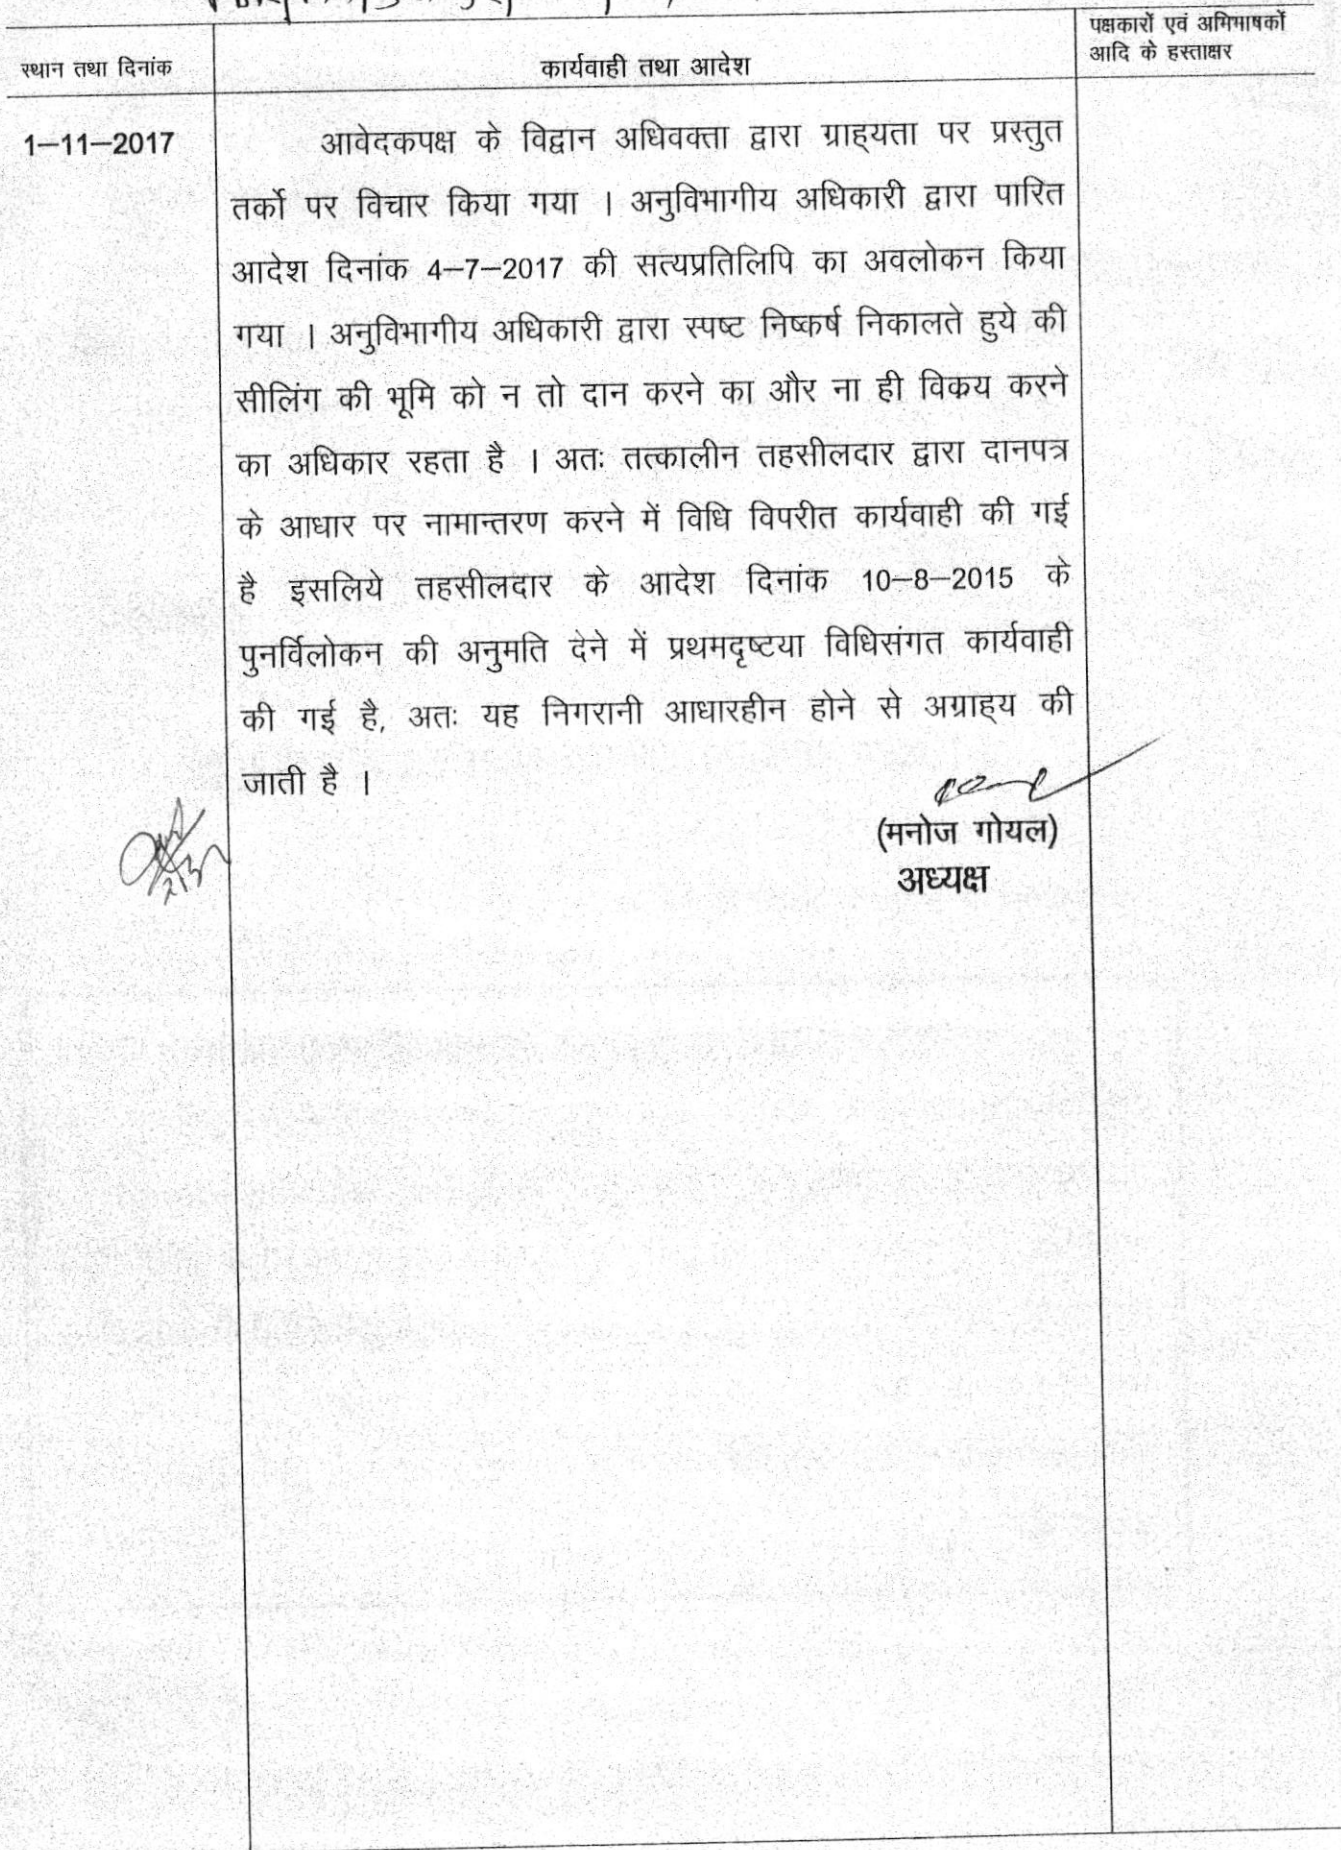 पक्षकारों एवं अभिभाषकों
आदि के हस्ताक्षर
स्थान तथा दिनांक
कार्यवाही तथा आदेश
1–11–2017
आवेदकपक्ष के विद्वान अधिवक्ता द्वारा ग्राह्यता पर प्रस्तुत
तर्को पर विचार किया गया । अनुविभागीय अधिकारी द्वारा पारित
आदेश दिनांक 4–7–2017 की सत्यप्रतिलिपि का अवलोकन किया
गया । अनुविभागीय अधिकारी द्वारा स्पष्ट निष्कर्ष निकालते हुये की
सीलिंग की भूमि को न तो दान करने का और ना ही विकय करने
का अधिकार रहता है । अतः तत्कालीन तहसीलदार द्वारा दानपत्र
के आधार पर नामान्तरण करने में विधि विपरीत कार्यवाही की गई
है इसलिये तहसीलदार के आदेश दिनांक 10–8–2015 के
पुनर्विलोकन की अनुमति देने में प्रथमदृष्टया विधिसंगत कार्यवाही
की गई है, अतः यह निगरानी आधारहीन होने से अग्राह्य की
जाती है ।
(मनोज गोयल)
अध्यक्ष